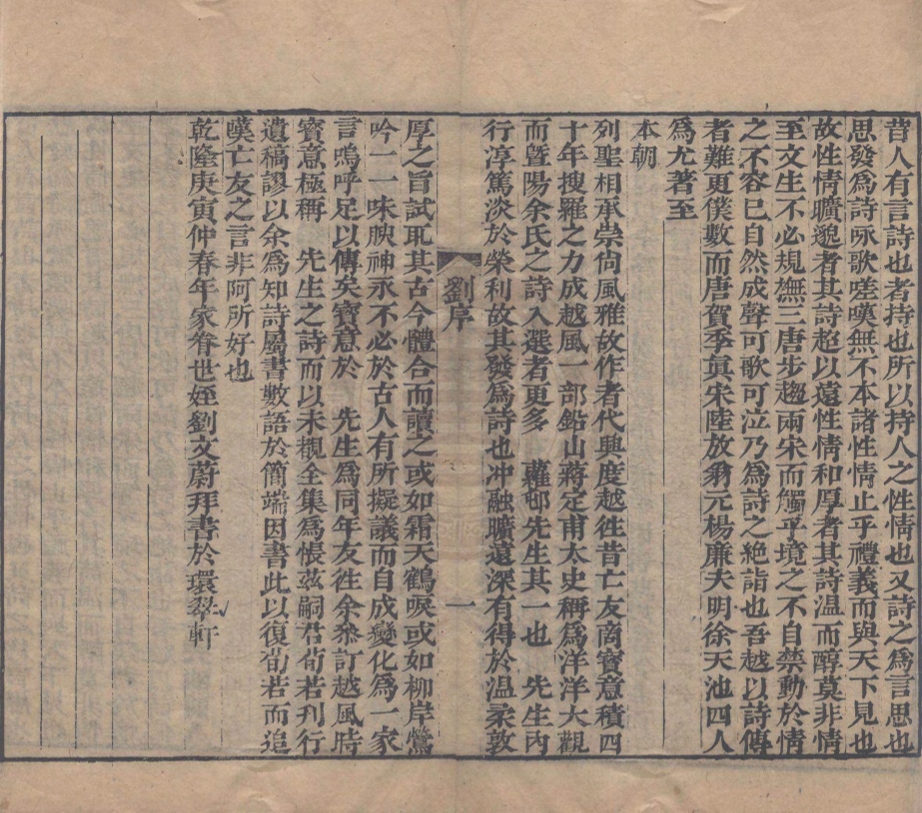 昔人有言詩也者持也所以持人之性情也又詩之爲言思也
思發爲詩咏歌嗟嘆無不本諸性情止乎禮義而與天下見也
故性情曠邈者其詩超以遠性情和厚者其詩温而醇莫非情
至文生不必規撫三唐步趨兩宋而觸乎境之不自禁動於情
之不容已自然成聲可歌可泣乃爲詩之絶詣也吾越以詩傳
者難更僕數而唐賀季眞宋陸放翁元楊廉夫明徐天池四人
爲尤著至
本朝
列聖相承崇尙風雅故作者代興度越徃昔亡友商寶意積四
十年搜羅之力成越風一部鉛山蔣定甫太史稱爲洋洋大觀
而曁陽余氏之詩入選者更多 蘿邨先生其一也 先生內
行淳篤淡於榮利故其發爲詩也冲融曠遠深有得於温柔敦
劉序
一
厚之旨試取其古今體合而讀之或如霜天鶴唳或如柳岸鶯
吟一一味腴神永不必於古人有所擬議而自成變化爲一家
言嗚呼足以傳矣寶意於 先生爲同年友徃余叅訂越風時
寶意極稱 先生之詩而以未觀全集爲悵玆嗣君荀若刋行
遺稿謬以余爲知詩屬書數語於簡端因書此以復荀若而追
嘆亡友之言非阿所好也
乾隆庚寅仲春年家眷世姪劉文蔚拜書於環翠軒